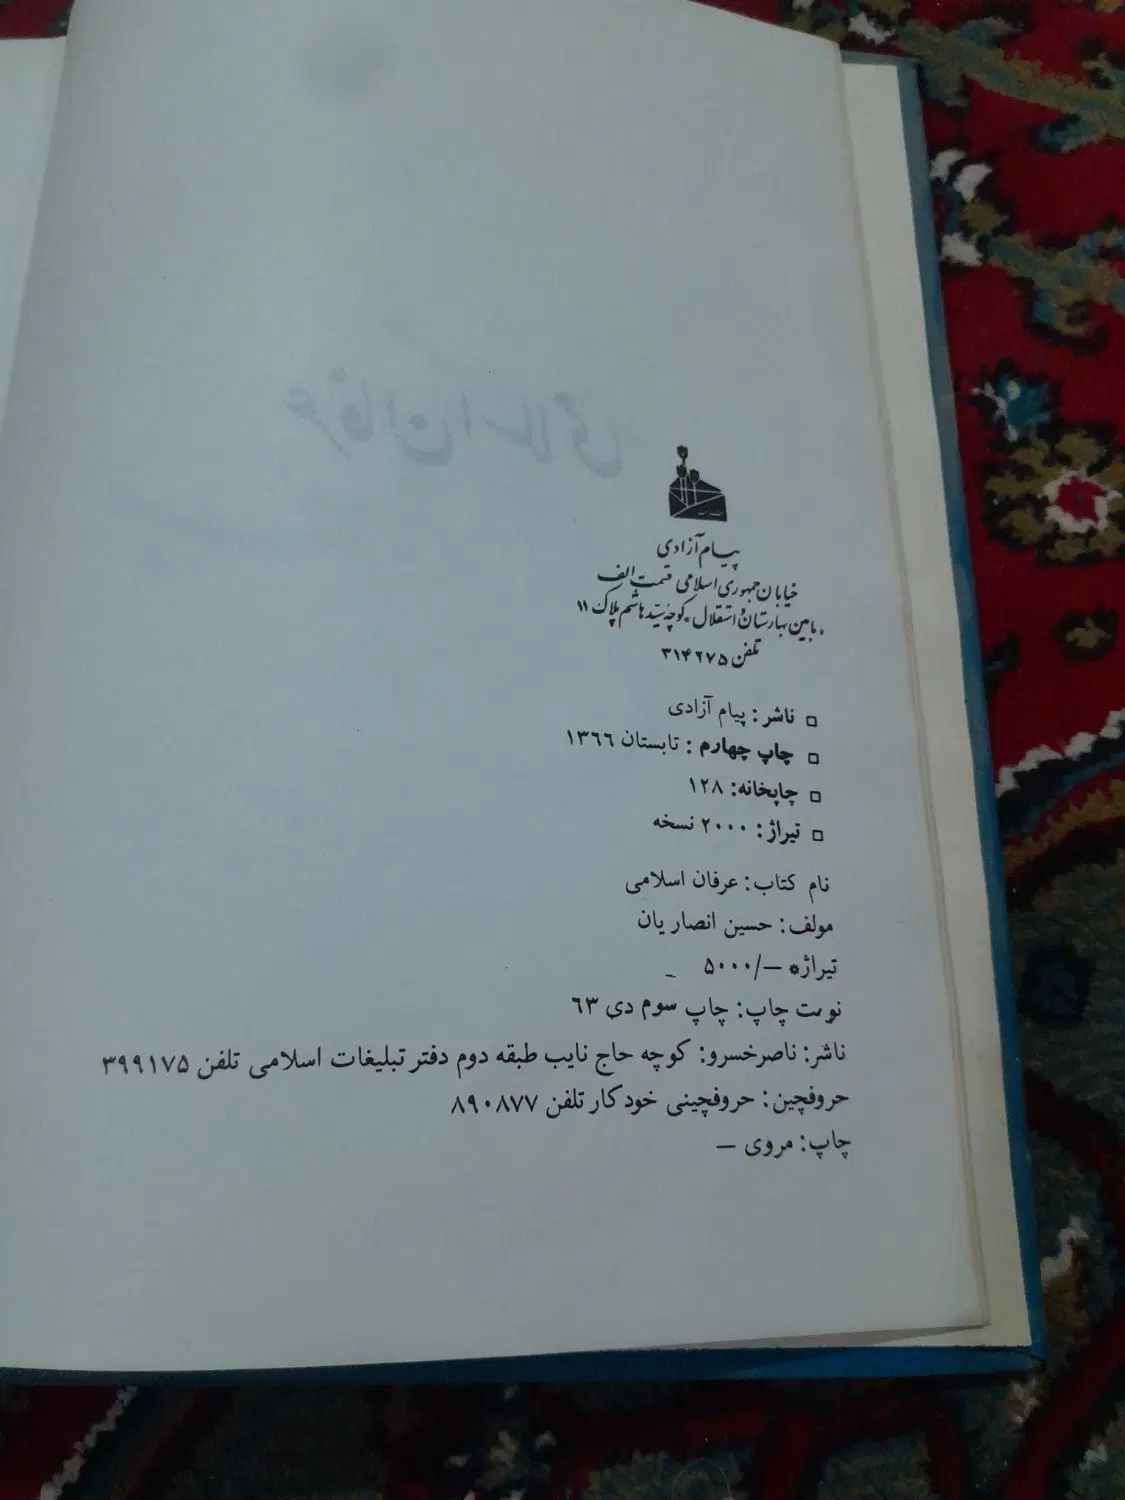 عرفان اسلامی
پیام آزادی
خیابان جمهوری اسلامی قسمت الف
مابین بهارستان و استقلال . کوچه سیّد هاشم پلاک ۱۱
تلفن ۳۱۴۲۷۵
□ ناشر: پیام آزادی
□ چاپ چهارم: تابستان ۱۳۶۶
□ چاپخانه: ۱۲۸
□ تیراژ: ۲۰۰۰ نسخه
نام کتاب: عرفان اسلامی
مولف: حسین انصاریان
تیراژه —/۵۰۰۰ –
نوبت چاپ: چاپ سوم دی ۶۳
ناشر: ناصرخسرو: کوچه حاج نایب طبقه دوم دفتر تبلیغات اسلامی تلفن ۳۹۹۱۷۵
حروفچین: حروفچینی خودکار تلفن ۸۹۰۸۷۷
چاپ: مروی –